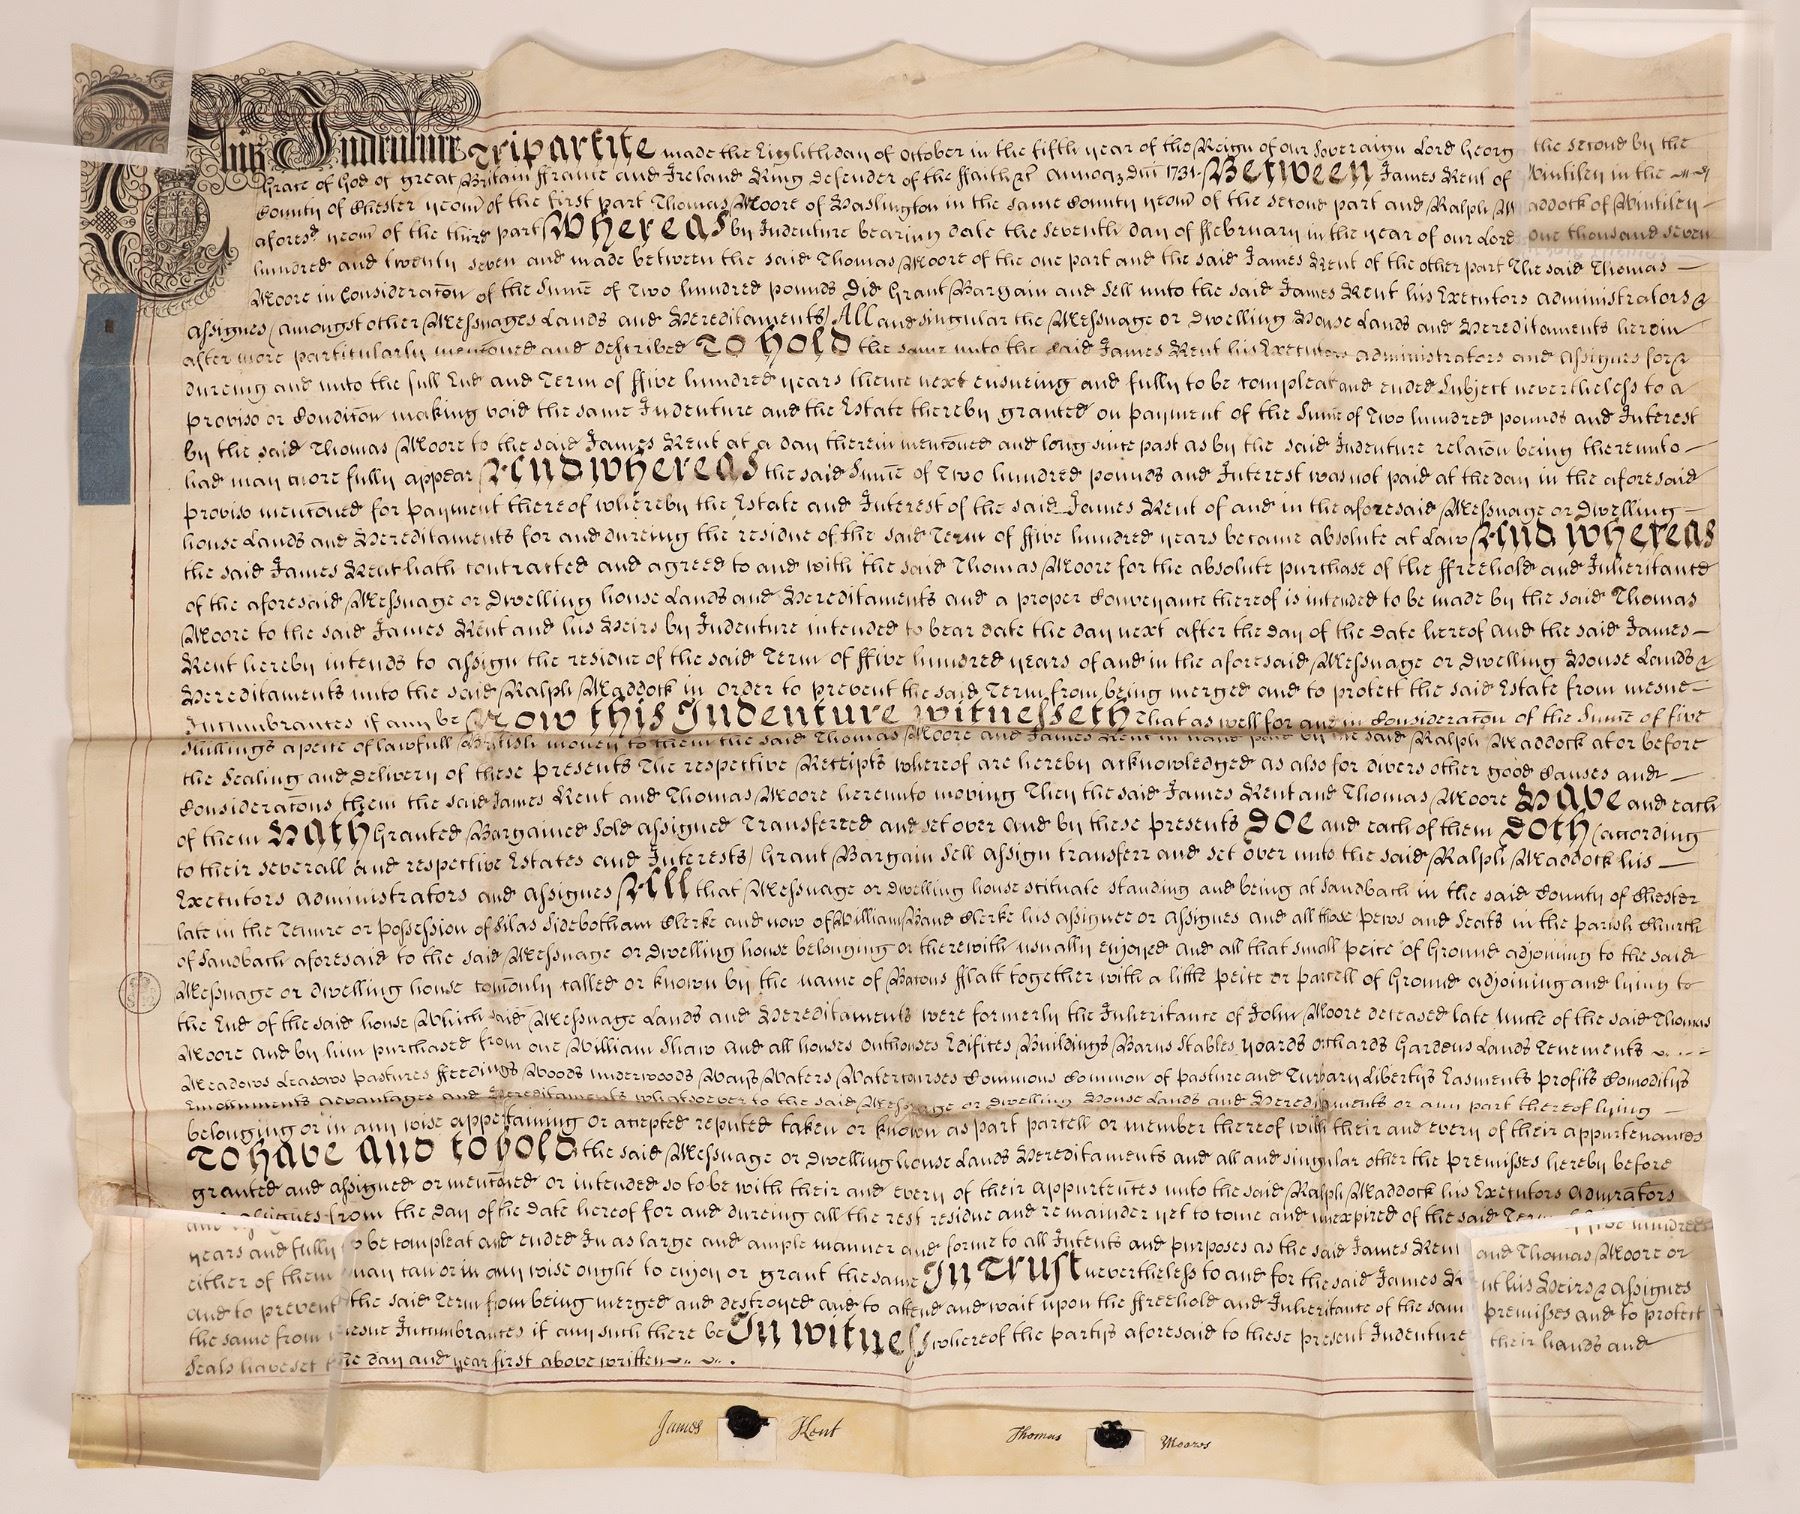 This Indenture Tripartite made the Eighth day of October in the fifth year of the Reign of our Sovereign Lord Georg the second by the
Grace of God of great Britain ffrance and Ireland King Defender of the ffaith &c Annoq Dni 1731 Between James Kent of Wintiley in the
County of Chester yeom of the first part Thomas Moore of Haslington in the same County yeom of the second part and Ralph Maddock of Wintiley
aforesd yeom of the third part Whereas by Indenture bearing date the seventh day of ffebruary in the year of our Lord one thousand seven
hundred and twenty seven and made between the said Thomas Moore of the one part and the said James Kent of the other part The said Thomas
Moore in Consideraton of the Sume of Two hundred pounds Did Grant Bargain and Sell unto the said James Kent his Executors administrators &
assignes (amongst other Messuages Lands and Hereditaments) All and singular the Messuage or Dwelling House Lands and Hereditaments herein
after more particularly mentoned and described To hold the same unto the said James Kent his Executors administrators and assignes for &
dureing and unto the full End and Term of ffive hundred years thence next ensueing and fully to be compleat and ended Subject nevertheless to a
proviso or Conditon making void the same Indenture and the Estate thereby granted on payment of the Sume of Two hundred pounds and Interest
by the said Thomas Moore to the said James Kent at a day therein mentoned and long since past as by the said Indenture relaton being thereunto
had may more fully appear And whereas the said Sume of Two hundred pounds and Interest was not paid at the day in the aforesaid
proviso mentoned for payment thereof whereby the Estate and Interest of the said James Kent of and in the aforesaid Messuage or Dwelling
house Lands and Hereditaments for and dureing the residue of the said Term of ffive hundred years became absolute at Law And whereas
the said James Kent hath contracted and agreed to and with the said Thomas Moore for the absolute purchase of the ffreehold and Inheritance
of the aforesaid Messuage or Dwelling house Lands and Hereditaments and a proper Conveyance thereof is intended to be made by the said Thomas
Moore to the said James Kent and his Heirs by Indenture intended to bear date the day next after the day of the date hereof And the said James
Kent hereby intends to assign the residue of the said Term of ffive hundred years of and in the aforesaid Messuage or Dwelling House Lands &
Hereditaments unto the said Ralph Maddock in order to prevent the said Term from being merged and to protect the said Estate from mesne
Incumbrances if any be Now this Indenture witnesseth That as well for and in Consideraton of the Sume of five
shillings a peice of lawfull British money to them the said Thomas Moore and James Kent in hand paid by the said Ralph Maddock at or before
the Sealing and Delivery of these presents The respective Receipts whereof are hereby acknowledged as also for divers other good Causes and
Consideratons them the said James Kent and Thomas Moore hereunto moving They the said James Kent and Thomas Moore Have and each
of them Hath Granted Bargained Sold assigned Transferred and set over And by these presents Doe and each of them Doth (according
to their severall and respective Estates and Interests) Grant Bargain Sell assign transferr and set over unto the said Ralph Maddock his
Executors administrators and assignes All that Messuage or dwelling house scituate standing and being at Sandbach in the said County of Chester
late in the Tenure or possession of Silas Sidebotham Clerke and now of William Hand Clerke his assignee or assignes and all those pews and Seats in the parish Church
of Sandbach aforesaid to the said Messuage or dwelling house belonging or therewith usually enjoyed And all that small peice of Ground adjoining to the said
Messuage or dwelling house comonly called or known by the name of Barons fflatt together with a little peice or parcell of Ground adjoining and lying to
the End of the said house Which said Messuage Lands and Hereditaments were formerly the Inheritance of John Moore deceased late Uncle of the said Thomas
Moore and by him purchased from one William Shaw And all houses Outhouses Edifices Buildings Barns Stables yoards orchards Gardens Lands Tenements
Meadows Leasows pastures ffeedings Woods underwoods Ways Waters Watercourses Commons Common of pasture and Turbary Libertys Easments profits Comoditys
Emoluments advantages and Hereditaments whatsoever to the said Messuage or Dwelling House Lands and Hereditaments or any part thereof lying
belonging or in any wise appertaining or accepted reputed taken or known as part parcell or member thereof with their and every of their appurtenances
To have And to hold the said Messuage or Dwelling house Lands Hereditaments and all and singular other the premisses hereby before
granted and assigned or mentoned or intended so to be with their and every of their appurtences unto the said Ralph Maddock his Executors Admrators
and assignes from the day of the date hereof for and dureing all the rest residue and remainder yet to come and unexpired of the said Term of five hundred
years and fully to be compleat and ended In as large and ample manner and forme to all Intents and purposes as the said James Kent and Thomas Moore or
either of them may can or in any wise ought to enjoy or grant the same In Trust nevertheless to and for the said James Kent his Heirs & assignes
and to prevent the said Term from being merged and destroyed and to attend and wait upon the ffreehold and Inheritance of the same premisses and to protect
the same from mesne Incumbrances if any such there be In witness whereof the partys aforesaid to these present Indentures their hands and
Seals have set the day and year first above written
James Kent
Thomas Moores